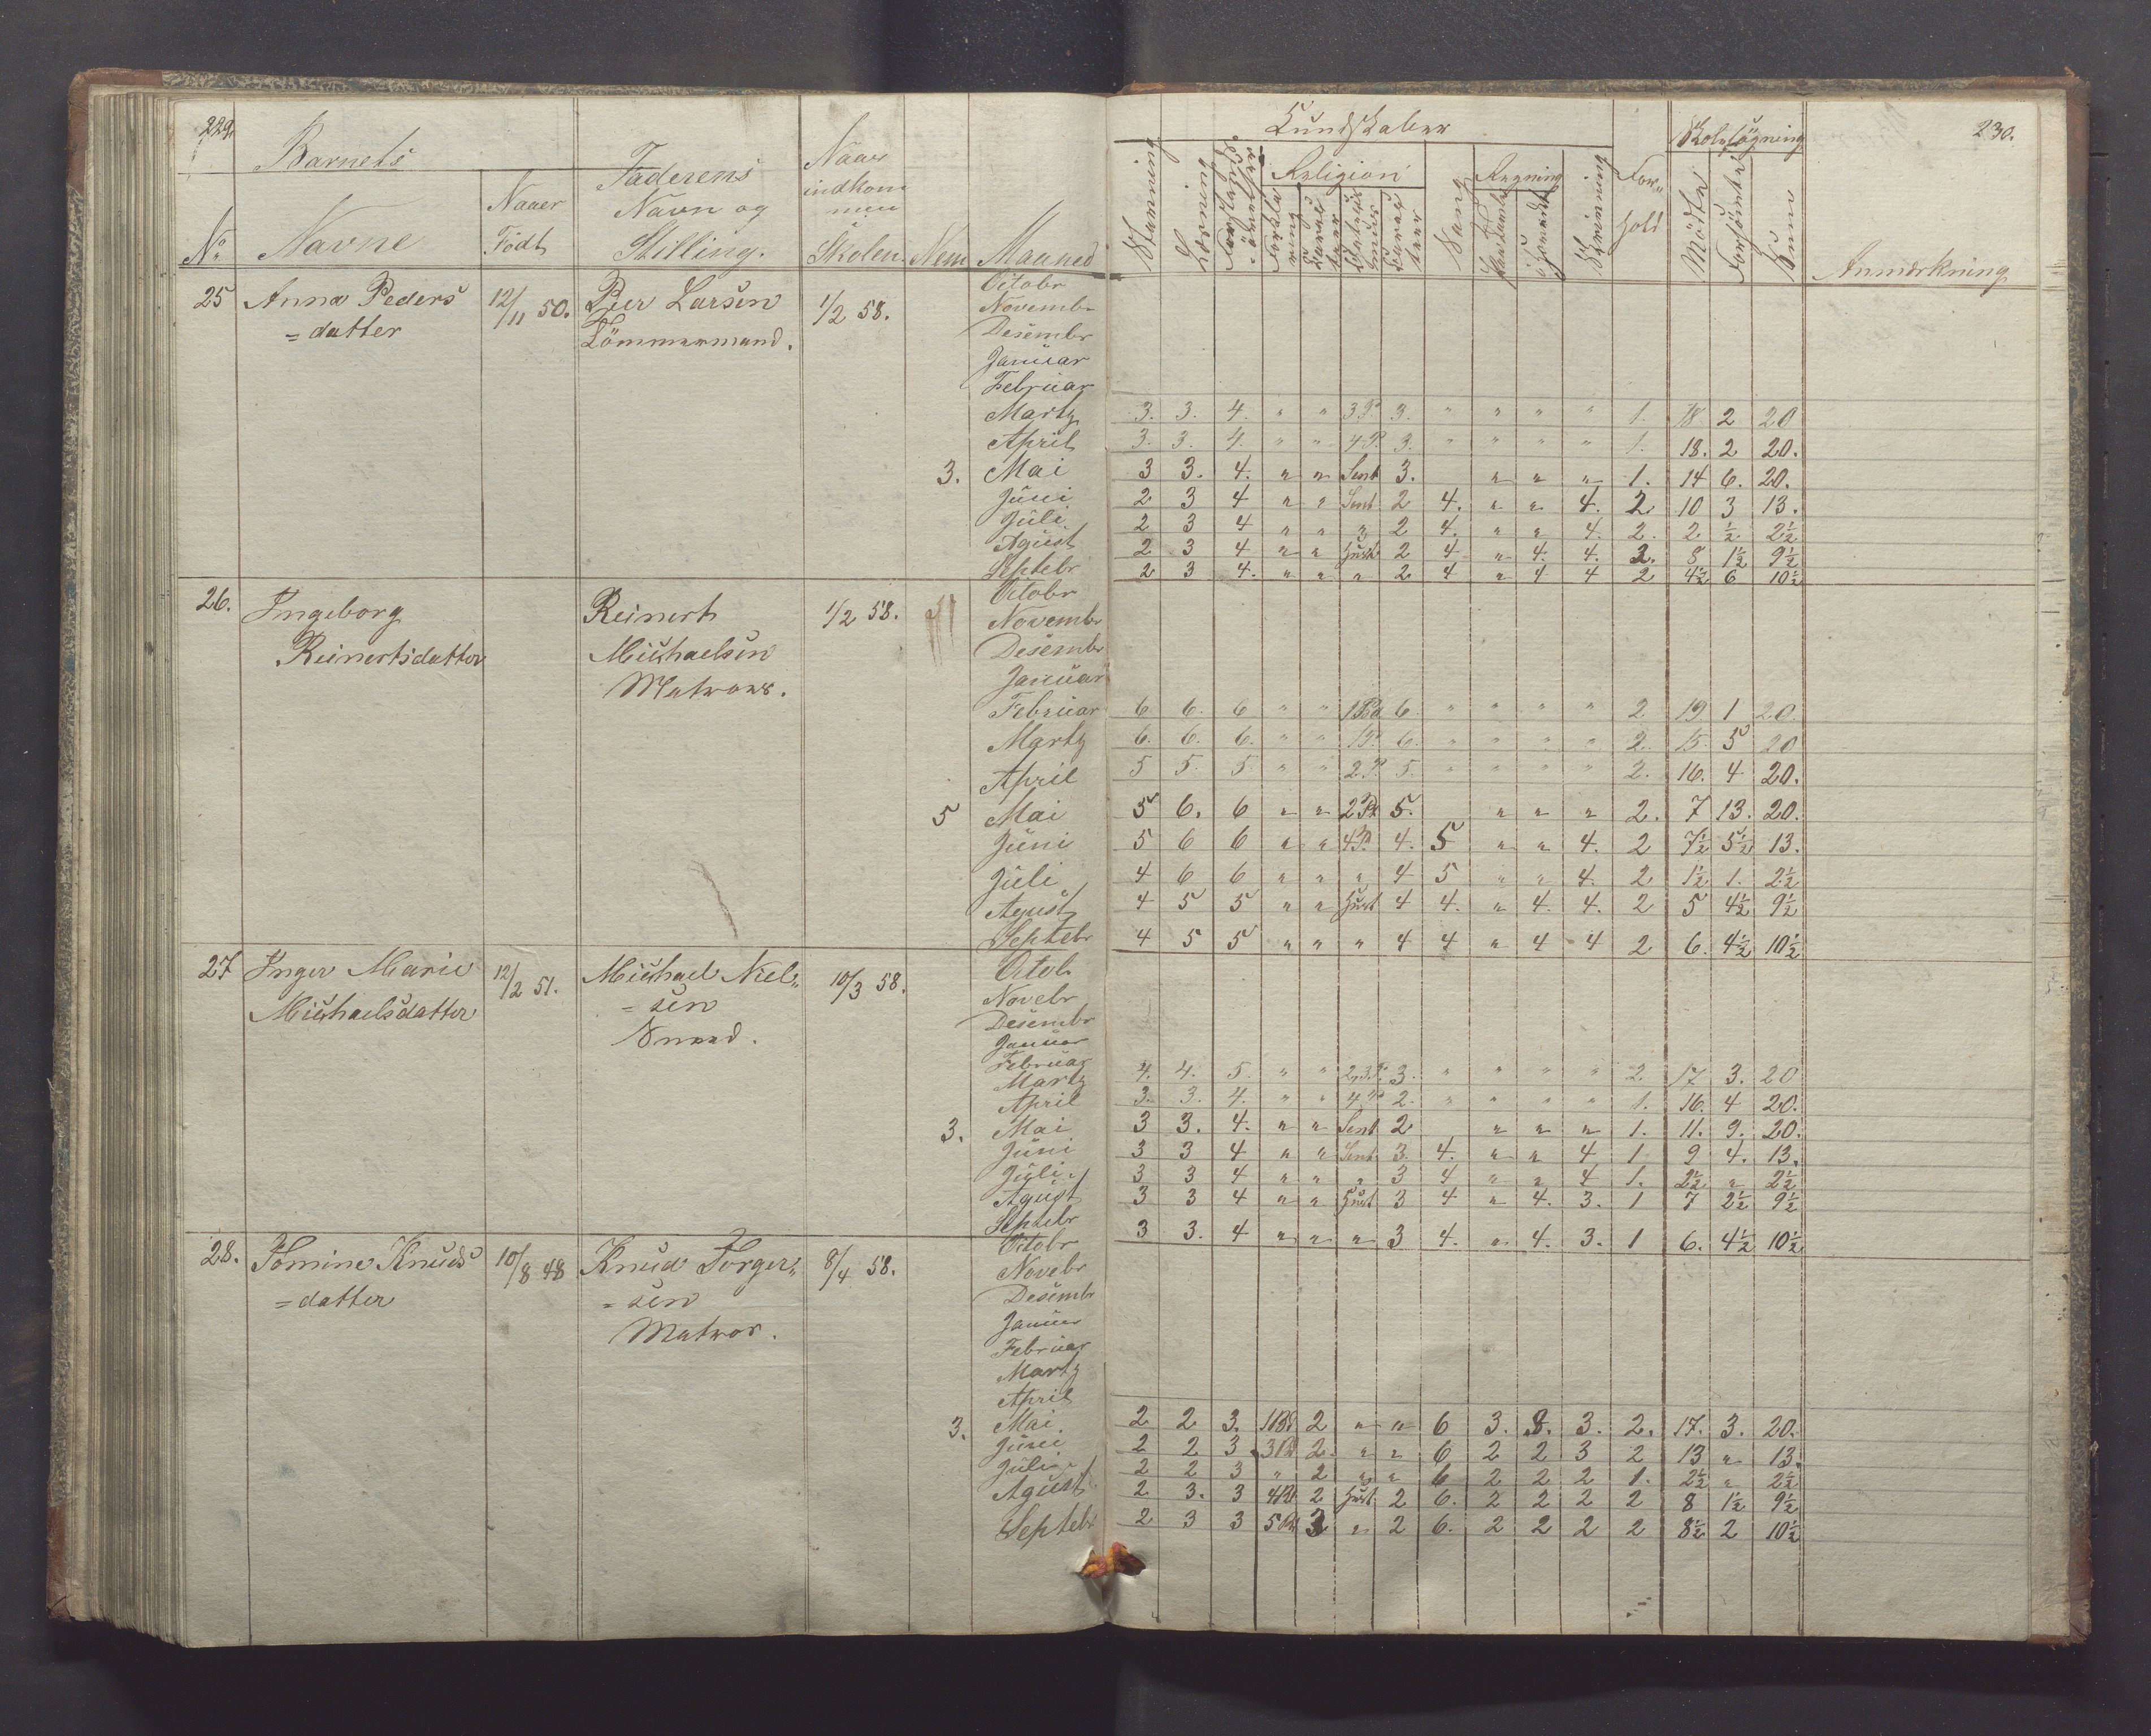 229.
Barnets
No
Navne
Naaer
Födt
Faderens
Navn og
Stilling.
Naar
indkom
men
Skolen.
Nem
Maaned
25 Anna Peders 12/11 50. Peer Larsen 1/2 58.
=datter Tömmermand.
Octobr
Novembr
Desembr
Januar
Februar
Martz
April
3. Mai
Juni
Juli
Agust
Septebr
26. Ingeborg Reinert 1/2 58.
Reinertsdatter Michaelsen
Matroes.
Octobr
Novembr
Desembr
Januar
Februar
Martz
April
5 Mai
Juni
Juli
Agust
Septebr
27 Inger Marie 12/2 51. Michael Niel„ 10/3 58.
Michaelsdatter =sen
Smed.
Octob
Novebr
Desembr
Januar
Februar
Martz
April
3. Mai
Juni
Juli
Agust
Septebr
28. Tomine Knuds 10/8 48 Knud Torger„ 8/4 58.
=datter =sen
Matros.
Octobr
Novebr
Desembr
Januar
Februar
Martz
April
3. Mai
Juni
Juli
Agust
Septebr
230.
Kundskaber
Stavning
Læsning
Religion
Forklaring
Sang
Regning
Skrivning
For„
hold
Skolesögning
Mödte
Forsömte
Sum
Anmærkning
3. 3. 4. „ „ 3 P. 3. „ „ „ „ 1. 18 2 20
3. 3. 4. „ „ 4 P. 3. „ „ „ „ 1. 18. 2 20.
3 3. 4. „ „ Sent 3. „ „ „ 1. 14 6. 20.
2 3 4 „ „ Sent 2 4. „ „ 4. 2. 10 3 13.
2 3 4 „ „ „ 2 4. „ „ 4. 2. 2 ½ 2½
2 3 4 „ „ Hust 2 4 „ 4. 4. 2. 8 1½ 9½
2 3 4. „ „ „ 2 4 „ 4 4 2 4½ 6 10½
6 6. 6 „ „ 1 Bd 6. „ „ „ „ 2 19 1 20.
6. 6. 6. „ „ 1 P. 6. „ „ „ „ 2. 15. 5 20
5 5. 5. „ „ 2 P. 5. „ „ „ „ 2. 16. 4 20.
5 6. 6 „ „ 2 P. 5. „ „ „ 2. 7 13. 20.
5 6 6 „ „ 4 P. 4. 5 „ „ 4. 2 7½ 5½ 13.
4 6 6 „ „ „ 4 5 „ „ 4. 2 1½ 1. 2½
4 5 5 „ „ Hust 4 4. „ 4. 4. 2 5 4½ 9½
4 5 5 „ „ „ 4 4 „ 4 4 2 6. 4½ 10½
4. 4. 5. „ „ 2,3 P. 3. „ „ „ „ 2. 17 3. 20
3. 3. 4. „ „ 4 P. 2. „ „ „ „ 1. 16. 4 20.
3 3. 4. „ „ Sent 2 „ „ „ 1. 11. 9. 20.
3 3 4 „ „ Sent 3. 4. „ „ 4 1 9 4. 13.
3 3 4 „ „ „ 3 4 „ „ 4 1. 2½ „ 2½
3 3 4 „ „ Hust 3 4 „ 4. 3. 1 7 2½ 9½
3 3. 4 „ „ „ 3 4. „ 4. 3. 1 6. 4½ 10½
2 2 3. 1 Bd 2 „ „ 6 3. 3. 3. 2. 17. 3. 20.
2 2 3 3 Pd 2. „ „ 6 2 2 3 2 13 „ 13.
2 2 3 „ 2 „ „ 6 2 2 2 1. 2½ „ 2½
2 3. 3 4 Pd 2 Hust 2 6. 2 2 2 2 8 1½ 9½
2 3 3 5 Pd 3 „ 2 6. 2 2 2 2 8½ 2 10½